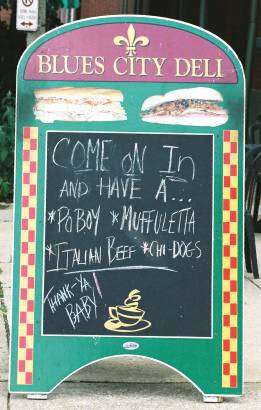 BLUES CITY DELI
COME ON IN
AND HAVE A...
*POBOY *MUFFULETTA
*ITALIAN BEEF *CHI-DOGS
THANK-YA
BABY!